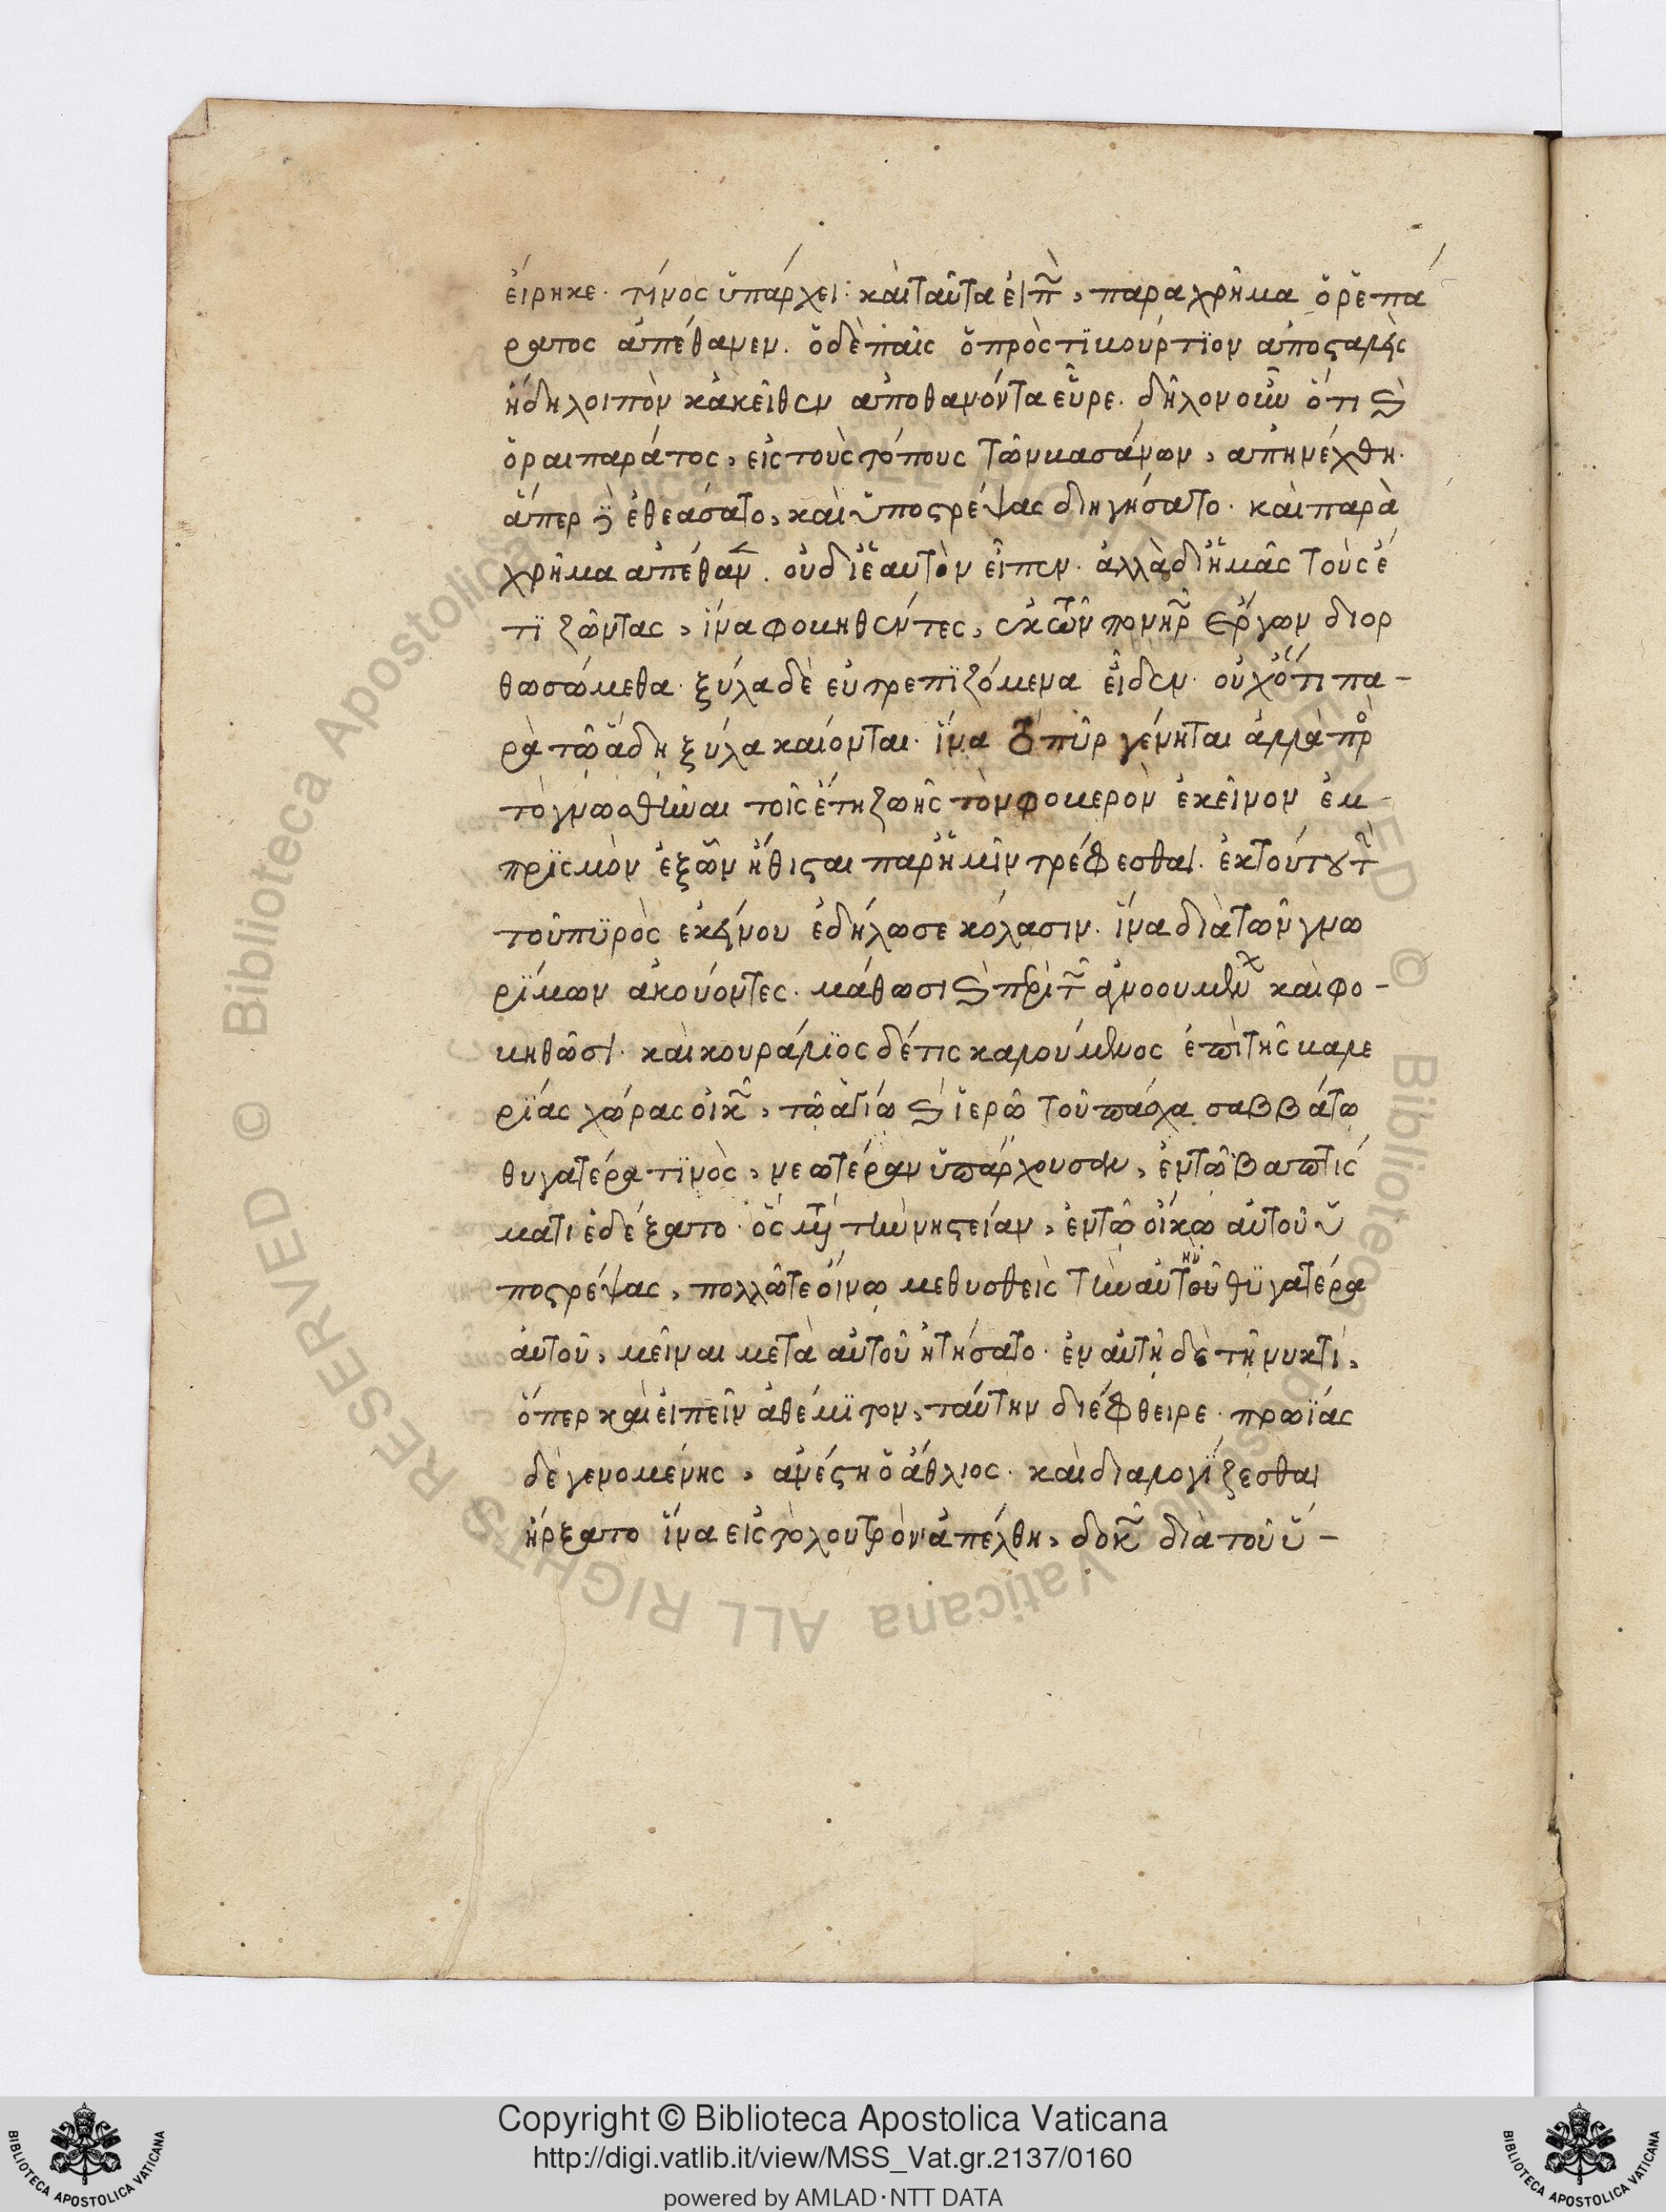 εἴρηκε. τίνος ὑπάρχει· καὶ ταῦτα εἰπ̃, παραχρῆμα ὁ ῥεπα
ράτος ἀπέθανεν. ὁ δὲ παῖς ὁ πρὸς τϊβούρτϊον ἀποσταλεὶς
ἤδη λοιπὸν κἀκεῖθεν ἀποθανόντα εὗρε. δῆλον οὖν ὅτι καὶ
ὁ ραιπαράτος, εἰς τοὺς τόπους τῶν βασάνων, ἀπηνέχθη.
ἅπερ καὶ ἐθεάσατο, καὶ ὑποστρέψας διηγήσατο. καὶ παρὰ
χρῆμα ἀπέθαν. οὐ δι ἑαυτὸν εἶπεν. ἀλλὰ δι ἡμᾶς τοὺς ἔ
τϊ ζῶντας, ἵνα φοβηθέντες, ἐκ τῶν πονηρ ἔργων διορ
θωσώμεθα. ξύλα δὲ εὐτρεπϊζόμενα εἶδεν. οὐχ ὅτι πα-
ρὰ τῷ ἅδῃ ξύλα καίονται. ἵνα τὸ πῦρ γένηται ἀλλὰ πρ
τὸ γνωσθῆναι τοῖς ἔτη ζωῆς τὸν φοβερὸν ἐκεῖνον ἐμ-
πρϊσμὸν ἐξ ὧν ἤθισται παρ ἡμῖν τρέφεσθαι. ἐκ τούτου τ
τοῦ πϋρὸς ἐκείνου ἐδήλωσε κόλασιν. ἵνα διὰ τῶν γνω
ρίμων ἀκούοντες. μάθωσι καὶ περὶ τ ἀγνοουμένων καὶ φο-
βηθῶσι. καὶ κουράλϊος δέ τις καλούμενος ἐπὶ τῆς βαλε
ρϊάς χώρας οἰκ, τῷ ἁγίῳ καὶ ἱερῷ τοῦ πάσχα σαββάτῳ
θυγατέρα τϊνὸς, νεωτέραν ὑπάρχουσαν, ἐν τῷ βαπτίσ
ματι ἐδέξατο. ὃς μετὰ τὴν νηστείαν, ἐν τῷ οἴκῳ αὐτοῦ ὑ
ποστρέψας, πολλῷ τε οἴνῳ μεθυσθεὶς τὴν αὐτοῦ θϋγατέρα
αὐτοῦ, μεῖναι μετὰ αὐτοῦ ἠτήσατο. ἐν αὐτῇ δὲ τῇ νυκτὶ,
ὅπερ καὶ εἰπεῖν ἀθέμϊτον, ταύτην διέφθειρε. πρωϊάς
δὲ γενομένης, ἀνέστη ὁ ἄθλιος. καὶ διαλογίζεσθαι
ἤρξατο ἵνα εἰς τὸ λουτρὸν ἀπέλθη, δοκ διὰ τοῦ ὕ-
Copyright © Biblioteca Apostolica Vaticana
http://digi.vatlib.it/view/MSS_Vat.gr.2137/0160
powered by AMLAD·NTT DATA
BIBLIOTECA APOSTOLICA VATICANA
BIBLIOTECA APOSTOLICA VATICANA
© Biblioteca Apostolica Vaticana ALL RIGHTS RESERVED
© Biblioteca Apostolica Vaticana ALL RIGHTS RESERVED